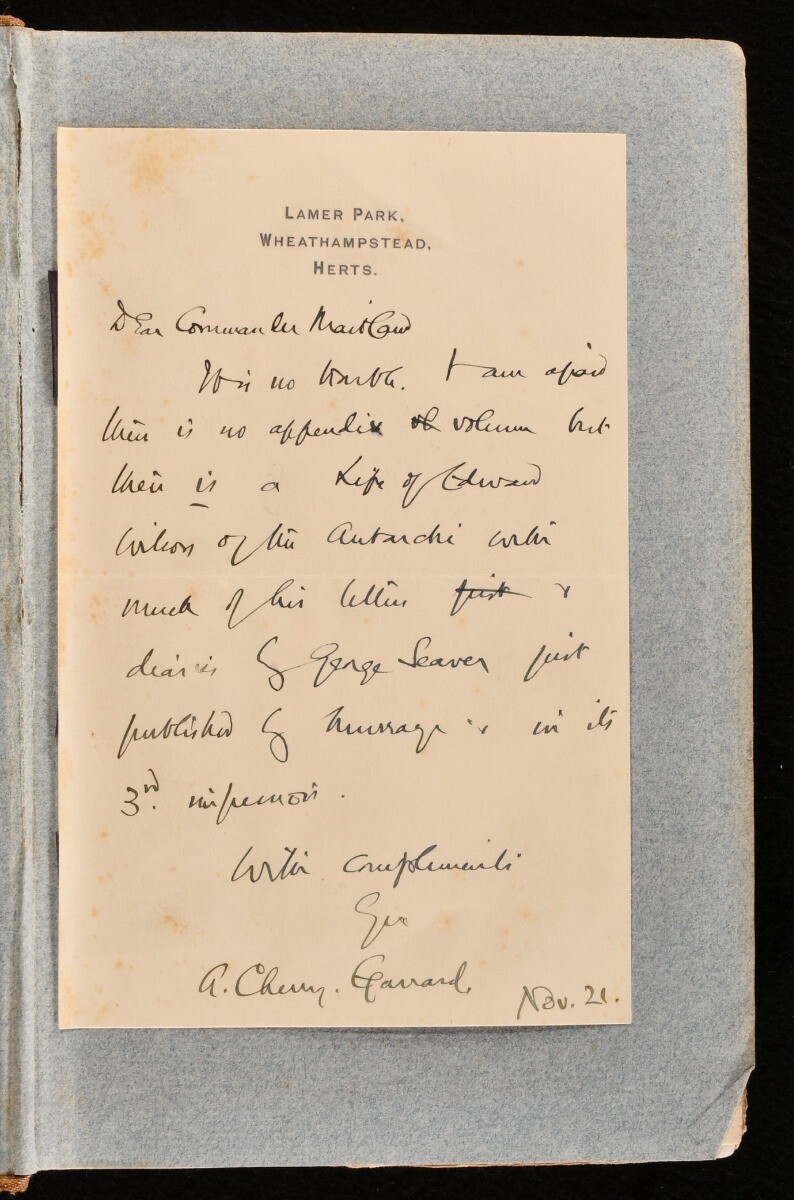 LAMER PARK,
WHEATHAMPSTEAD,
HERTS.
Dear Commander Maitland
It is no trouble. I am afraid
there is no appendix volume but
there is a Life of Edward
Wilson of the Antarctic with
much of his letters &
diaries by George Seaver just
published by Murray & in its
3rd. impression.
With compliments
A. Cherry-Garrard.
Nov. 21.